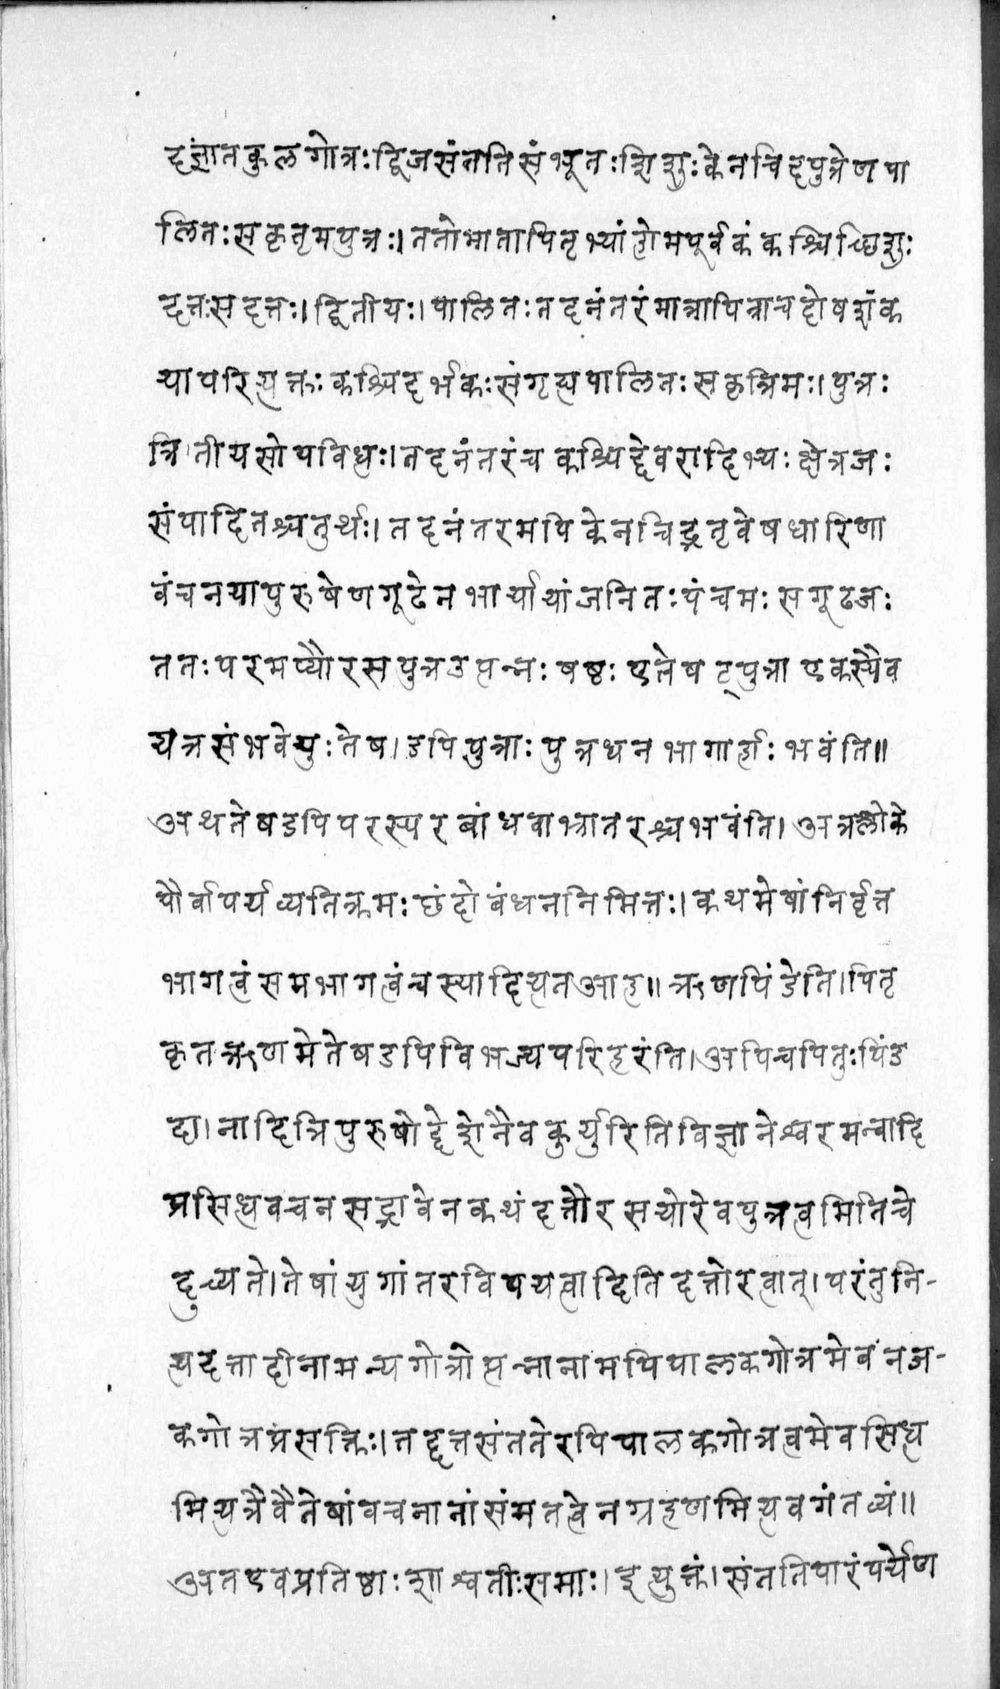 दज्ञांतकुलगोत्रःद्विजसंततिसंभूतःशिशुःकेनचिदपुत्रेणपा
लितःसकृतृमपुत्रः।ततोमातापितृभ्यांहोमपूर्वकंकश्चिच्छिशुः
दत्तःसदत्तः।द्वितीयः।पालितःतदनंतरंमात्रापित्राचदोषशंक
यापरित्यक्तःकश्चिदर्भकःसंगृह्यपालितःसकृत्रिमः।पुत्रः
त्रितीयसोयविधः।तदनंतरंचकश्चिद्देवरादिभ्यःक्षेत्रजः
संपादितश्चतुर्थः।तदनंतरमपिकेनचिद्भर्तृवेषधारिणा
वंचनयापुरुषेणगूढेनभार्यायांजनितःपंचमःसगूढजः
ततःपरमप्यौरसपुत्रउत्पन्नःषष्ठःएतेषट्पुत्राएकस्यैव
यत्रसंभवेयुःतेष।डपिपुत्राःपुत्रधनभागार्हाःभवंति॥
अथतेषडपिपरस्परबांधवाभ्रातरश्चभवंति।अत्रश्लोके
पौर्वापर्यव्यतिक्रमःछंदोबंधननिमित्तः।कथमेषांनिर्वृत्त
भागत्वंसमभागत्वंचस्यादित्यतआह॥ऋणपिंडेति।पितृ
कृतऋणमेतेषडपिविभज्यपरिहरंति।अपिचपितुःपिंड
दा।नादित्रिपुरुषोद्देशेनैवकुर्युरितिविज्ञानेश्वरमन्वादि
प्रसिधवचनसद्भावेनकथंदत्तौरसयोरेवपुत्रत्वमितिचे
दुच्यते।तेषांयुगांतरविषयत्वादितिदत्तोरत्वात्।परंतुनि-
त्यदत्तादीनामन्यगोत्रोत्पन्नानामपिपालकगोत्रमेवंनज-
कगोत्रप्रंसक्तिः।तद्दत्तसंततेरपिपालकगोत्रत्वमेवसिध
मित्यत्रैवैतेषांवचनानांसंमतत्वेनग्रहणमित्यवगंतव्यं॥
अतएवप्रतिष्ठाःशाश्वतीःसमाः।इत्युक्तं।संततिपारंपर्येण